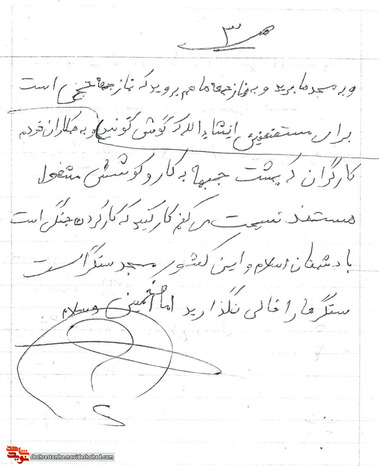 ۳
و به مسجدها برید و به نماز جمعه ها هم بروید که نماز جمعه حجی است
برای مستضعفین انشاء الله که گوش کنید و به همکاران خودم
کارگران که پشت جبهه به کار و کوشش مشغول
هستند نصیحت می کنم کار کنید که کار کردن جنگی است
با دشمنان اسلام و این کشور مسجد سنگر است
سنگرها را خالی نگذارید امام خمینی والسلام
shohrestanha.navideshahed.com